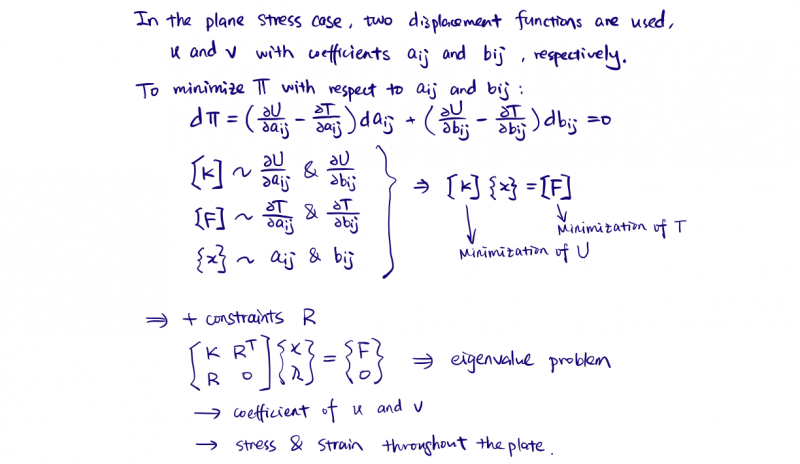 In the plane stress case, two displacement functions are used,
u and v with coefficients aij and bij, respectively.
To minimize Π with respect to aij and bij :
dΠ = (∂U/∂aij - ∂T/∂aij) daij + (∂U/∂bij - ∂T/∂bij) dbij = 0
[K] ~ ∂U/∂aij & ∂U/∂bij
[F] ~ ∂T/∂aij & ∂T/∂bij
{x} ~ aij & bij
⇒ [K] {x} = [F]
Minimization of T
Minimization of U
⇒ + constraints R
[K Rᵀ; R 0] {x; λ} = {F; 0} ⇒ eigenvalue problem
→ coefficient of u and v
→ stress & strain throughout the plate.